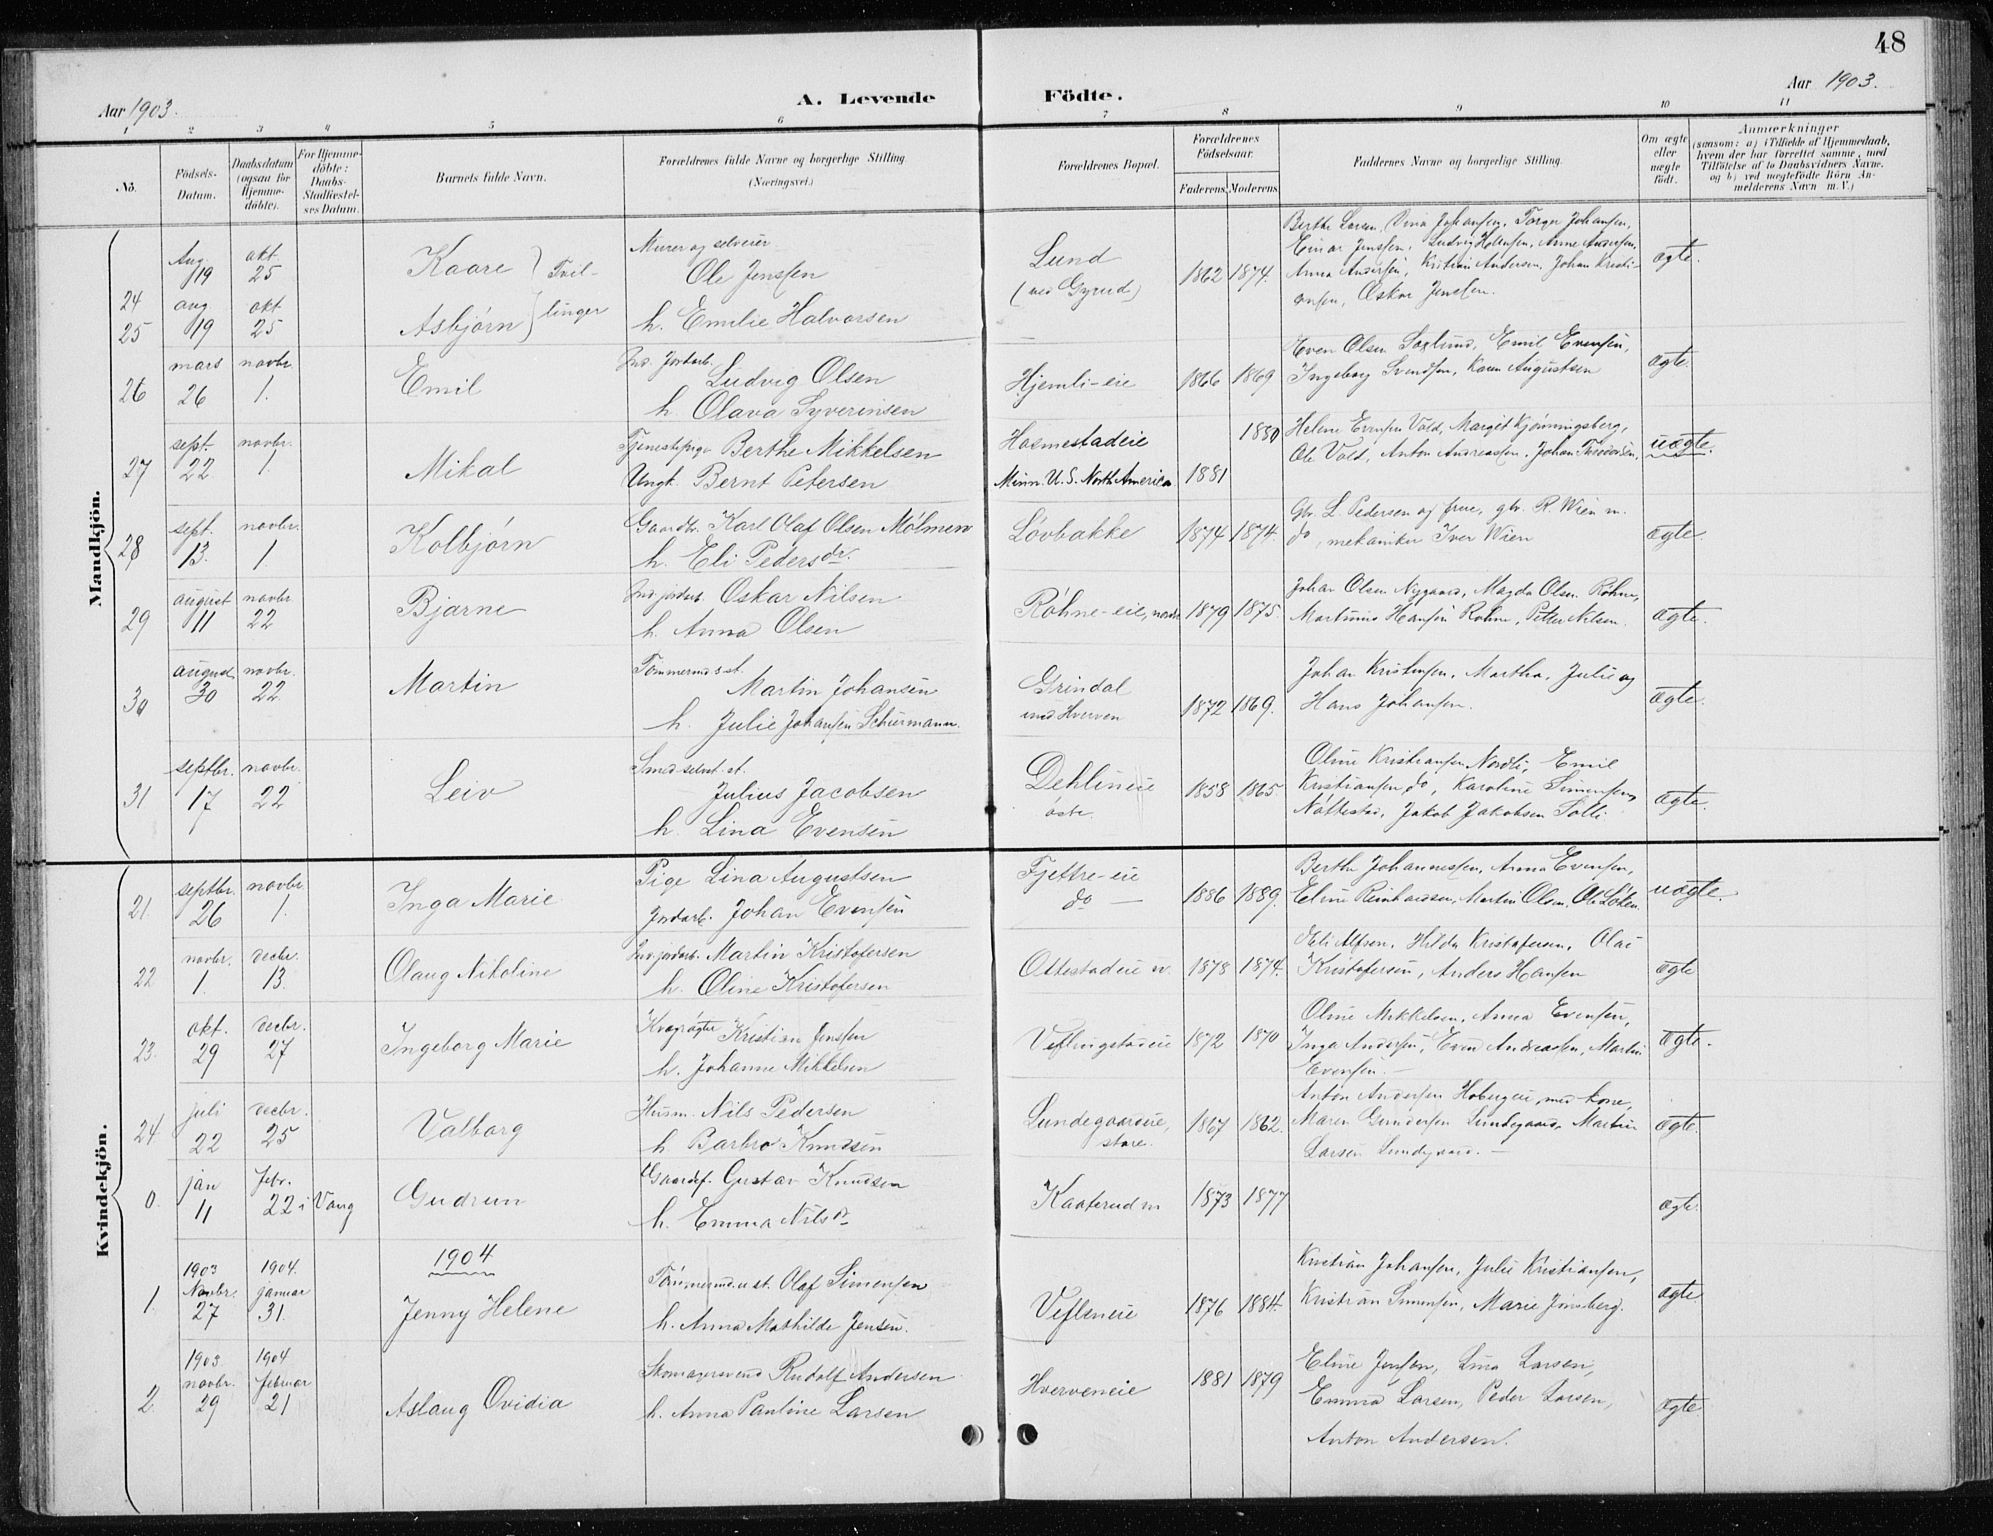 48
Aar 1903.
A. Levende Födte.
Aar 1903.
1 2 3 4 5 6 7 8 9 10 11
No.
Födsels-
Datum.
Daabsdatum
(ogsaa for
Hjemme-
döbte).
For Hjemme-
döbte:
Daabs-
Stadfæstel-
ses Datum.
Barnets fulde Navn.
Forældrenes fulde Navne og borgerlige Stilling.
(Næringsvei.)
Forældrenes Bopæl.
Forældrenes
Födselsaar.
Faderens. Moderens.
Faddernes Navne og borgerlige Stilling.
Om ægte
eller
uægte
födt.
Anmærkninger
(saasom: a) i Tilfælde af Hjemmedaab,
hvem der har forrettet samme, med
Tilföielse af to Daabsvidners Navne,
og b) ved uægtefödte Börn An-
melderens Navn m. V.)
Mandkjön.
24 Aug 19 okt. 25 Kaare } Tvil-
Murer og selveier
Ole Jenssen
Lund
(ved Gyrud) 1862 1874.
Berthe Larsen, Johansen, Torger Johansen,
Einar Jenssen, Ludvig, Anne Andersen,
Anna Andersen, Kristian Andersen, Johan Kristi-
ansen, Oskar Jenssen.
ægte.
25 aug 19 okt 25 Asbjørn } linger
h. Emilie Halvorsen
26 mars 26 novbr 1. Emil
Ind. Jordarb. Ludvig Olsen
h. Olava Syverinsen
Hjemli-eie 1866 1869
Even Olsen, Emil Evensen,
Ingeborg Svendsen, Karen Augustsen
ægte.
27 sept. 22 novbr. 1. Mikal
Tjenestepige Berthe Mikkelsen
Ungk. Bernt Petersen
Hosmestadeie 1880
Minn. U.S. North America 1881
Helene Evensen Vold, Margit Kjønningsberg,
Ole Vold, Anton Andreassen, Johan
uægte.
28 sept. 13. novbr. 1. Kolbjørn
Gaardbr. Karl Olaf Olsen Mølmen
h. Eli Pedersdr.
Løvbakke 1874 1874.
Gbr. L. Pedersen og frue, gbr. R Wien m.
do, mekaniker Iver Wien
ægte.
29 august 11 novbr 22 Bjarne
Ind jordarb. Oskar Nilsen
h. Anna Olsen
Røhne-eie, 1879 1875.
Johan Olsen Nygaard, Magda Olsen Røhne,
Martinius Hansen Røhne, Petter Nilsen.
ægte.
30 august 30 novbr. 22 Martin
Tømmermd st
Martin Johansen
h. Julie Johansen Schürmann.
Grindal
und. Hverven 1872 1869.
Johan Kristensen, Martha, Julie og
Hans Johansen.
ægte.
31 septbr. 17 novbr. 22 Leiv
Smed st.
Julius Jacobsen
h. Lina Evensen
Dehlineie
østr. 1858 1865.
Oline Kristiansen Nordli, Emil
Kristiansen do, Karoline Simensen,
Nøttestad, Jakob Jakobsen Solli.
ægte.
Kvindekjön.
21. septbr. 26 novbr. 1. Inga Marie
Pige Lina Augustsen
Jordarb. Johan Evensen
Fjettre-eie
do — 1886 1889.
Berthe Johannessen, Anna Evensen,
Eline Reinhardsen, Martin Olsen, Ole Løken
uægte.
22 novbr. 1. decbr. 13. Olaug Nikoline
Ind. jordarb. Martin Kristofersen
h. Oline Kristofersen
Ottestadeie n. 1878 1874.
Alfsen, Hilda Kristofersen, Olai
Kristofersen, Anders Hansen
ægte
23. okt. 29 decbr. 27 Ingeborg Marie
Kvægrøgter Kristian Jenssen
h. Johanne Mikkelsen
Veflingstadeie 1872 1870
Oline Mikkelsen, Anna Evensen,
Inga Andersen, Even Andreassen, Martin
Evensen. —
ægte.
24 juli 22 decbr. 25 Valborg
Husm. Nils Pedersen
h. Barbro Knudsen
Lundegaardeie,
store. 1867 1862.
Anton Andersen Hobergeie, med kone,
Maren Gundersen Lundegaard, Martin
Larsen Lundgaard. —
ægte.
0. jan 11 Febr. 22 i Vang Gudrun
Gaardf. Gustav Knudsen
h. Emma Nilsdr
Kaaterud m 1873 1877
ægte.
1904
1. 1903 Novbr. 27 1904. januar 31. Jenny Helene
Tømmermd. st. Olaf Simensen
h. Anna Mathilde Jensen.
Vefleneie 1876 1884.
Kristian Johansen, Julie Kristiansen,
Kristian Simensen, Marie Jønsberg.
ægte
2. 1903. novbr. 29 1904 februar 21 Aslaug Ovidia
Skomagersvend Rudolf Andersen
h. Anna Pauline Larsen
Hverveneie 1881 1879
Eline Jensen, Lina Larsen,
Emma Larsen, Peder Larsen,
Anton Andersen.
ægte